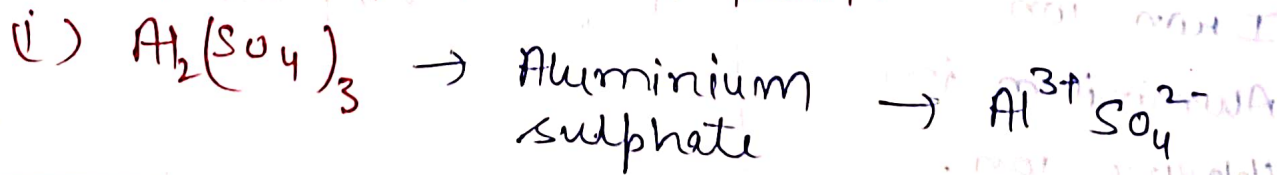 (i) Al₂(SO₄)₃ → Aluminium sulphate → Al³⁺ SO₄²⁻